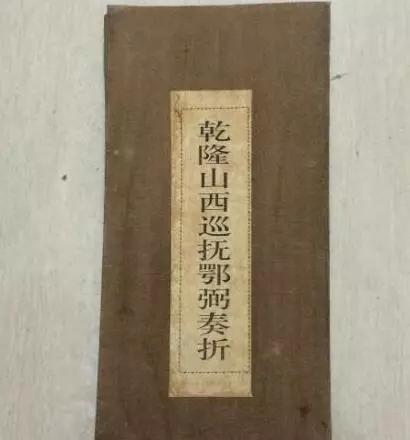 乾隆山西巡抚鄂弼奏折